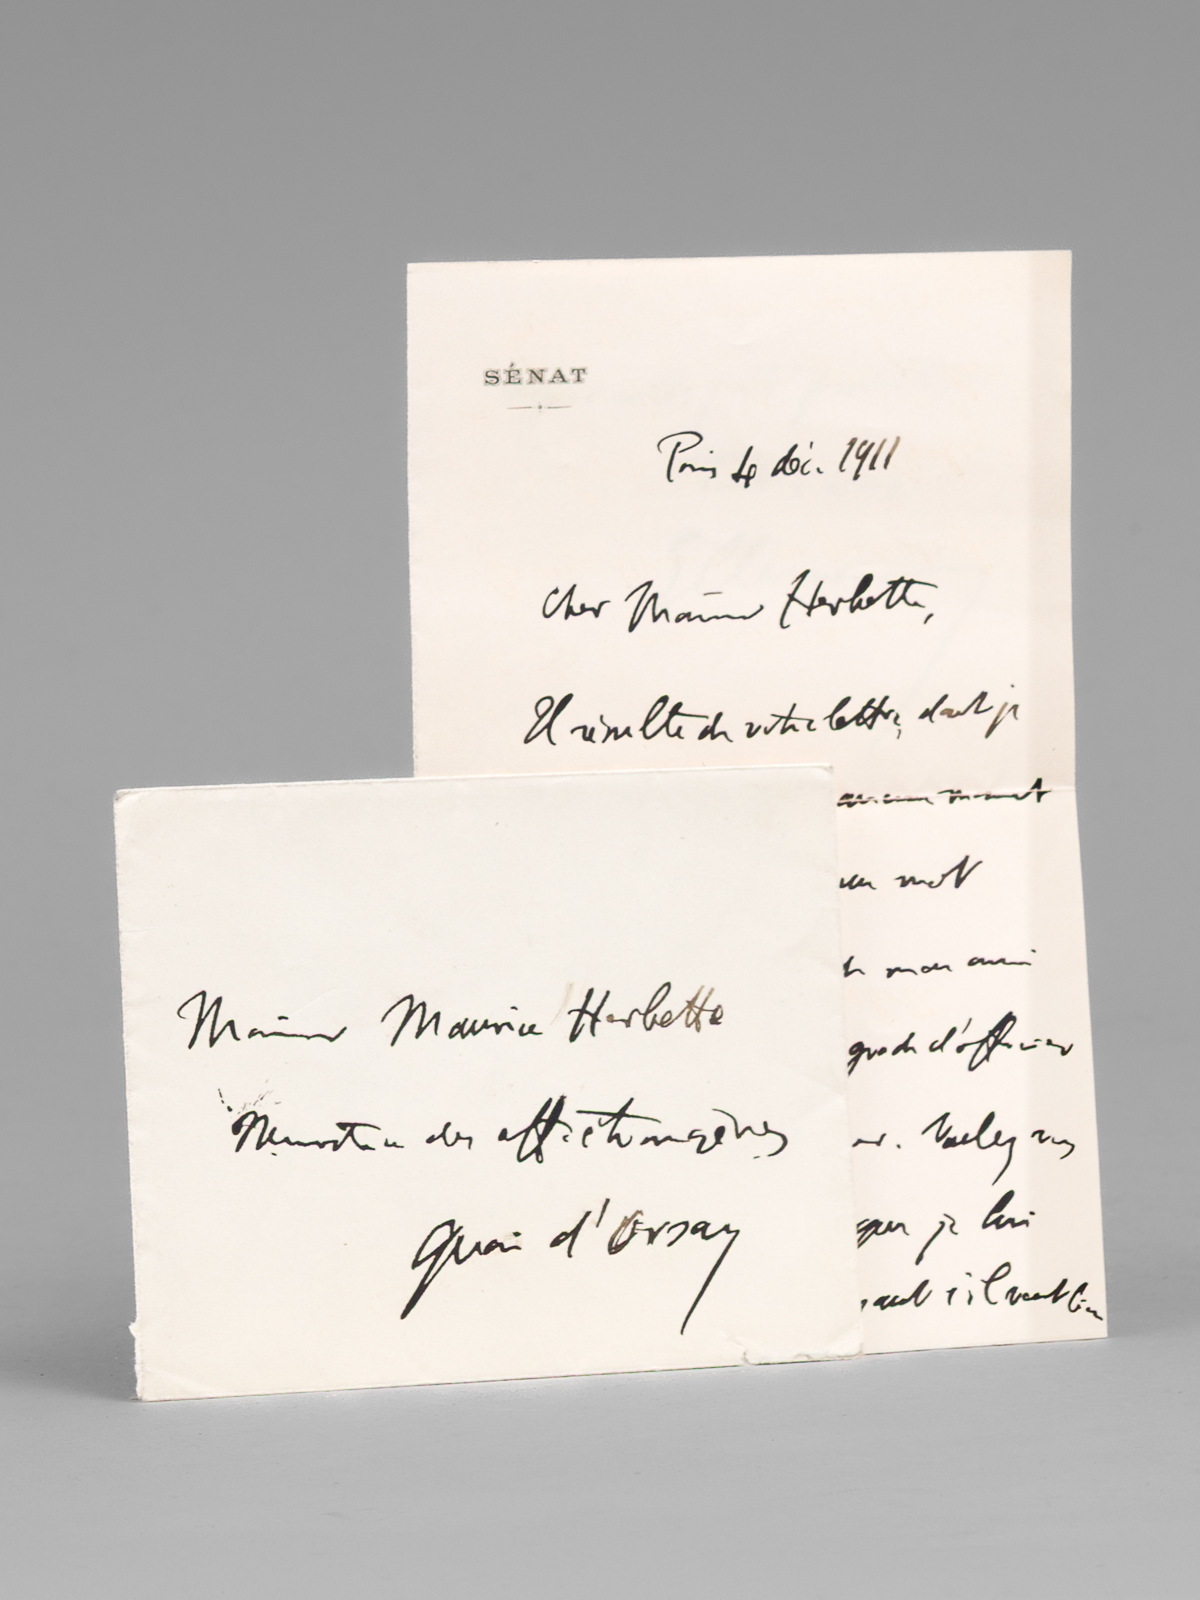 SÉNAT
Paris 4 déc. 1911
Cher Monsieur Herbette,
Il résulte de votre lettre, dont je
aucunement
un mot
de mon ami
grade d'officier
. Voulez vous
que je lui
s'il veut bien
Monsieur Maurice Herbette
Ministère des aff. étrangères
Quai d'Orsay